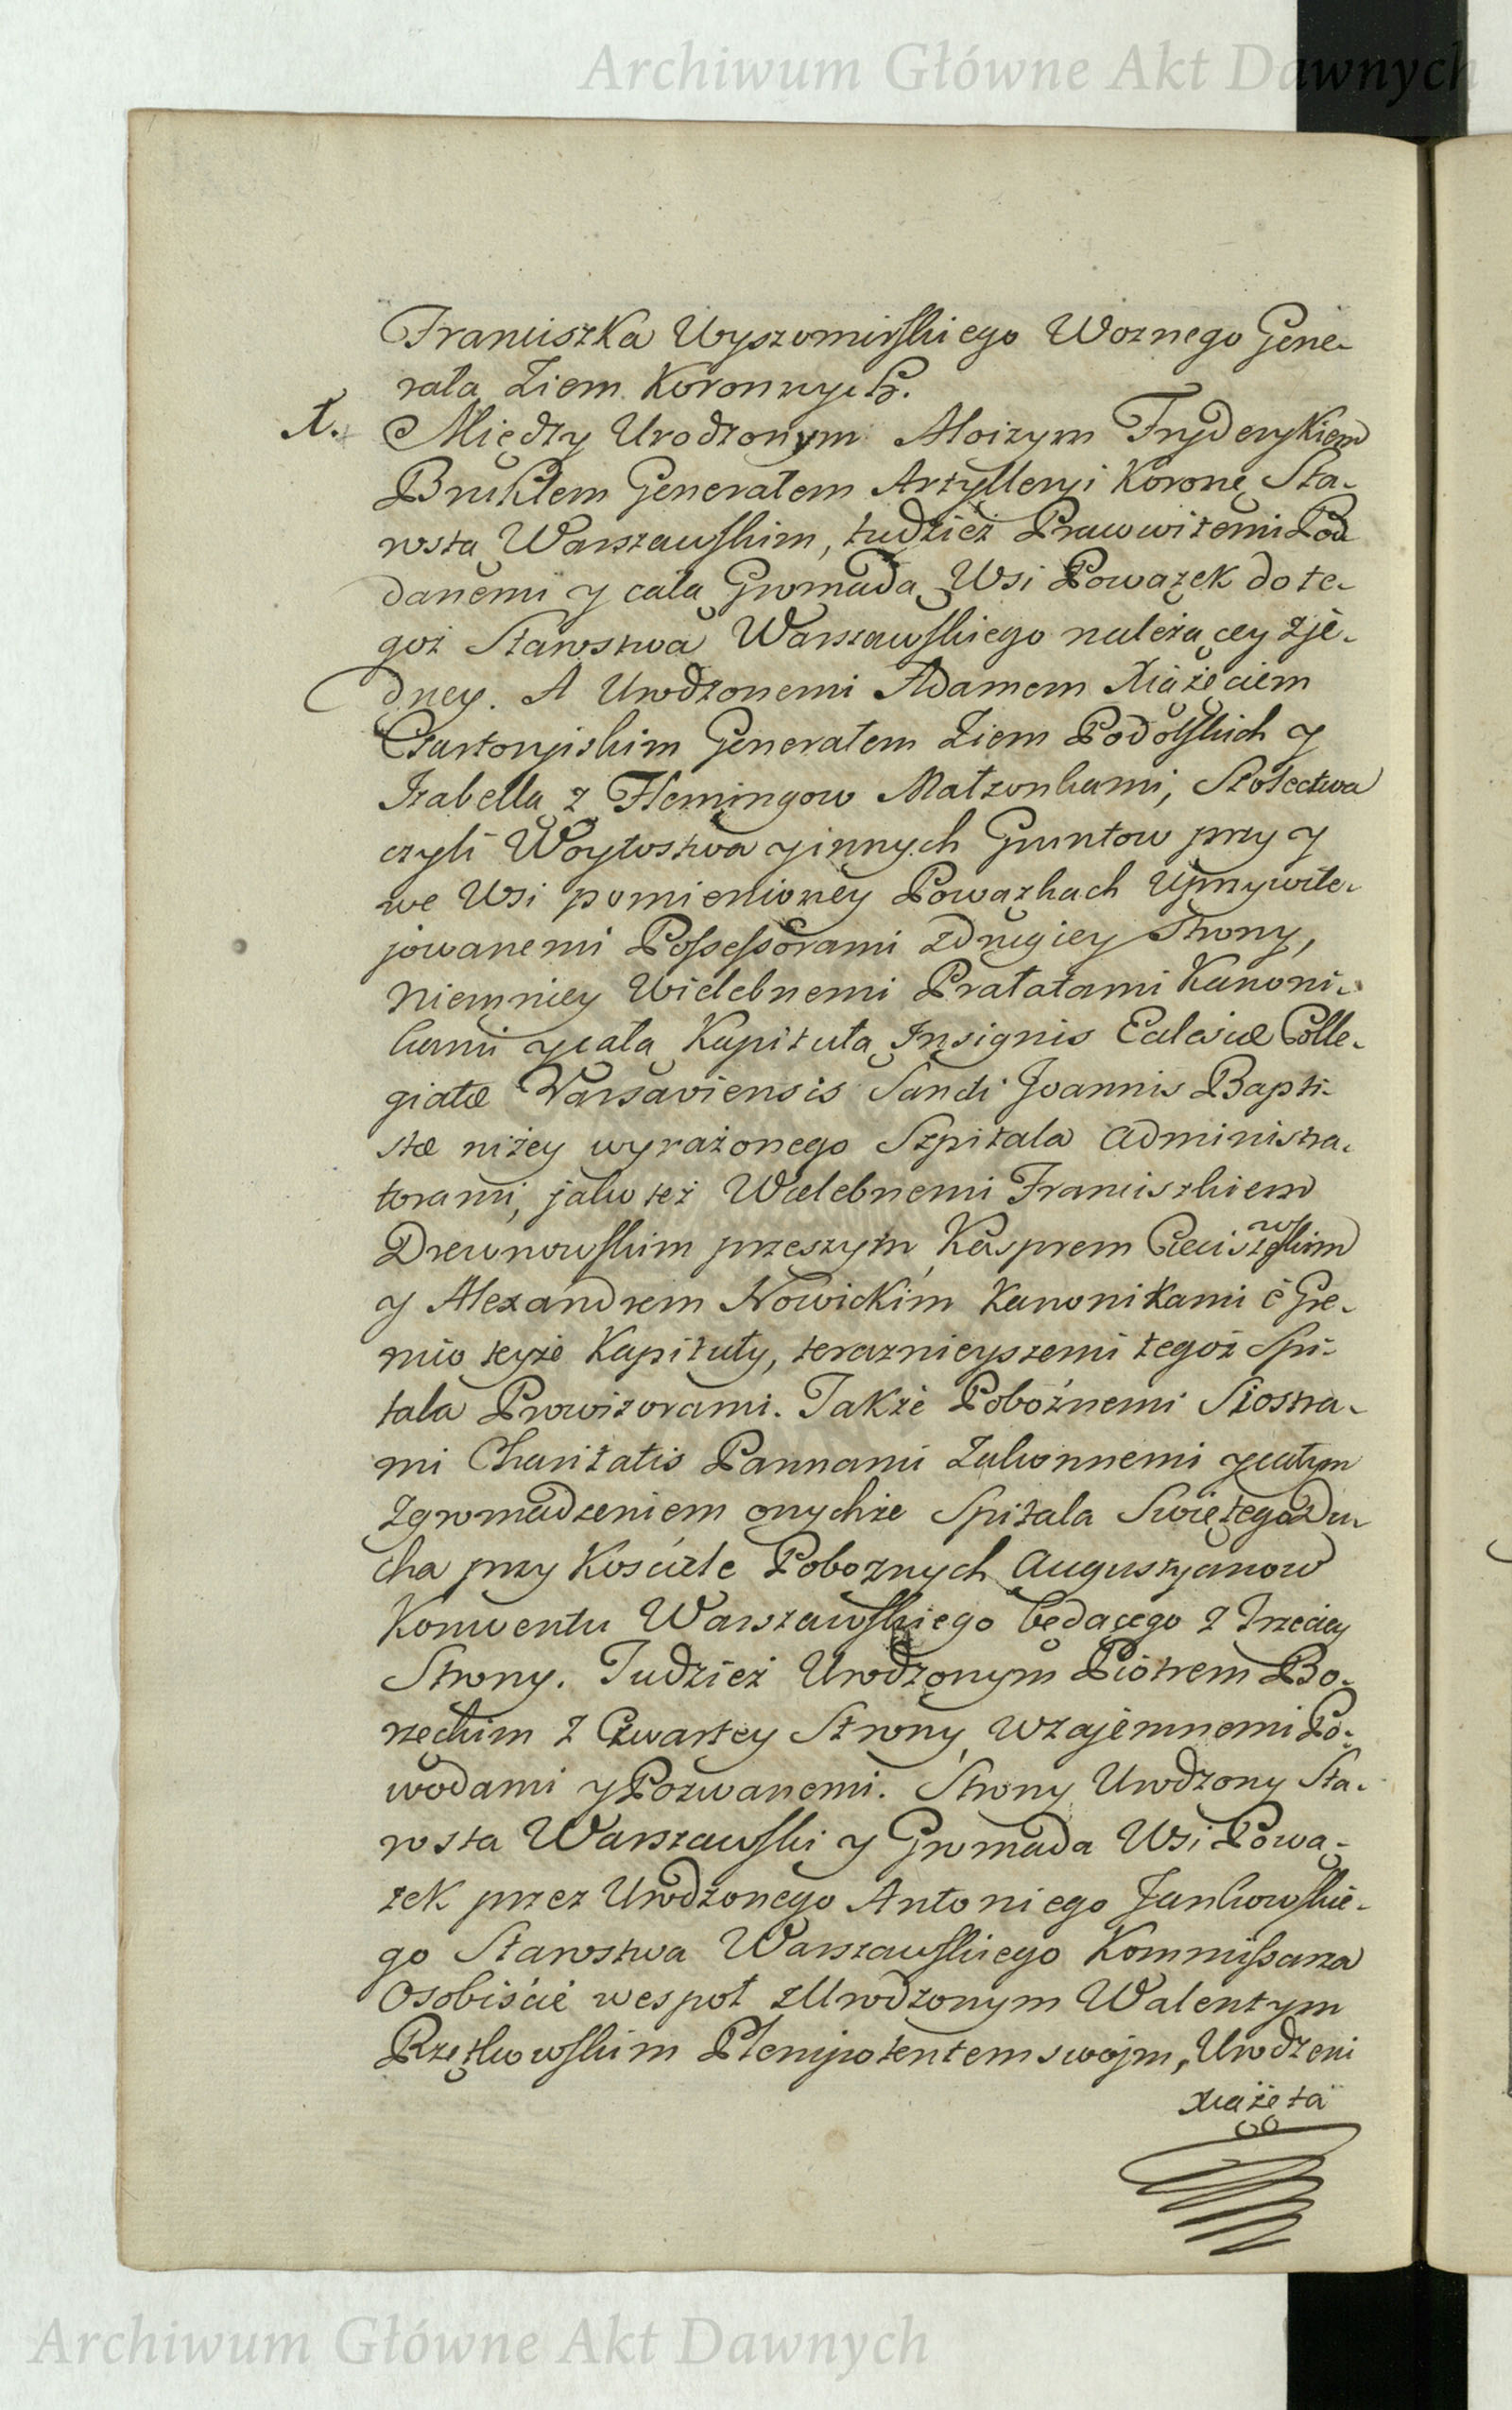 Archiwum Główne Akt Dawnych
Franciszka Wyszomirskiego Woznego Gene-
rała Ziem Koronnych.
1. Między Urodzonym Aloizym Fryderykiem
Bruhlem Generałem Artylleryi Koronę Sta-
rosta Warszawskim, tudzież Prawowitemi Pod
danemi y całą Gromadą Wsi Powązek do te-
goż Starostwa Warszawskiego należącey z je-
dney. A Urodzonemi Adamem Xiążęciem
Czartoryiskim Generałem Ziem Podolskich y
Izabellą z Flemingow Małżonkami, Szołectwa
czyli Woytostwa y innych Gruntow przy y
we Wsi pomienioney Powązkach Uprzywile-
jowanemi Possessorami z drugiey Strony,
Niemniey Wielebnemi Prałatami Kanoni-
kami y całą Kapitułą Insignis Eclesiæ Colle-
giatæ Varsaviensis Sancti Joannis Bapti-
stæ niżey wyrażonego Szpitala Administra-
torami, jako też Wielebnemi Franciszkiem
Drewnowskim przeszym, Kasprem Cieciszewskim
y Alexandrem Nowickim Kanonikami è Gre-
mio teyże Kapituły, teraznieyszemi tegoż Szpi-
tala Prowizorami. Także Pobożnemi Siostra-
mi Charitatis Pannami Zakonnemi y całym
Zgromadzeniem onychże Spitala Swiętego Du-
cha przy Kościele Pobożnych Augustyanow
Konwentu Warszawskiego będącego z Trzeciey
Strony. Tudzież Urodzonym Piotrem Bo-
rzęckim z Czwartey Strony, wzajemnemi Po-
wodami y Pozwanemi. Strony Urodzony Sta-
rosta Warszawski y Gromada Wsi Powa-
zek przez Urodzonego Antoniego Jankowskie-
go Starostwa Warszawskiego Kommissarza
Osobiście wespoł z Urodzonym Walentym
Rzętkowskim Plenipotentem swojm, Urodzeni
Xiążęta
Archiwum Główne Akt Dawnych